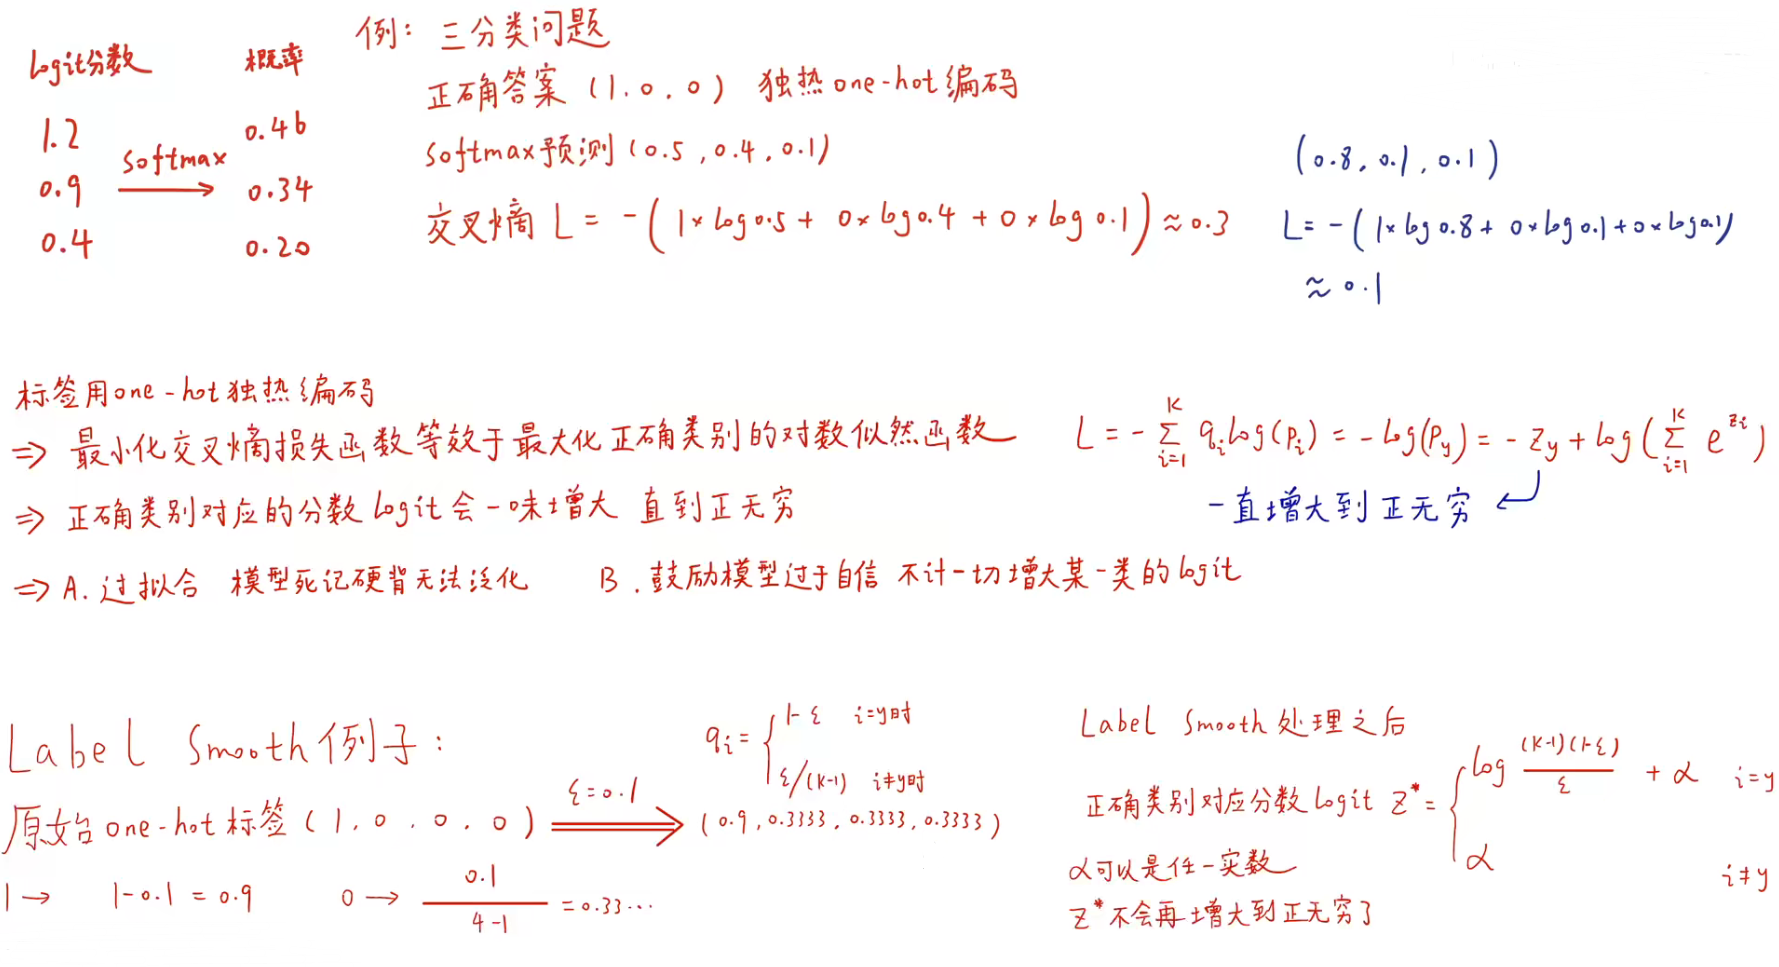 logit分数 概率
1.2 0.46
softmax
0.9 0.34
0.4 0.20
例: 三分类问题
正确答案 (1.0.0) 独热one-hot编码
softmax预测 (0.5,0.4,0.1)
交叉熵 L = -(1×log0.5 + 0×log0.4 + 0×log0.1) ≈ 0.3
(0.8,0.1,0.1)
L = -(1×log0.8 + 0×log0.1 + 0×log0.1)
≈ 0.1
标签用one-hot独热编码
⇒ 最小化交叉熵损失函数等效于最大化正确类别的对数似然函数
⇒ 正确类别对应的分数logit会一味增大 直到正无穷
⇒ A. 过拟合 模型死记硬背无法泛化 B. 鼓励模型过于自信 不计一切增大某一类的logit
L = -∑_{i=1}^{K} q_i log(p_i) = -log(p_y) = -z_y + log(∑_{i=1}^{K} e^{z_i})
一直增大到正无穷
Label Smooth例子:
q_i = { 1-ε i=y时
ε/(K-1) i≠y时
原始one-hot标签 (1,0.0,0) ε=0.1 (0.9,0.3333,0.3333,0.3333)
1→ 1-0.1=0.9 0→ 0.1/4-1 =0.33...
Label Smooth处理之后
正确类别对应分数logit z* = { log (K-1)(1-ε)/ε + α i=y
α i≠y
α可以是任一实数
z*不会再增大到正无穷了